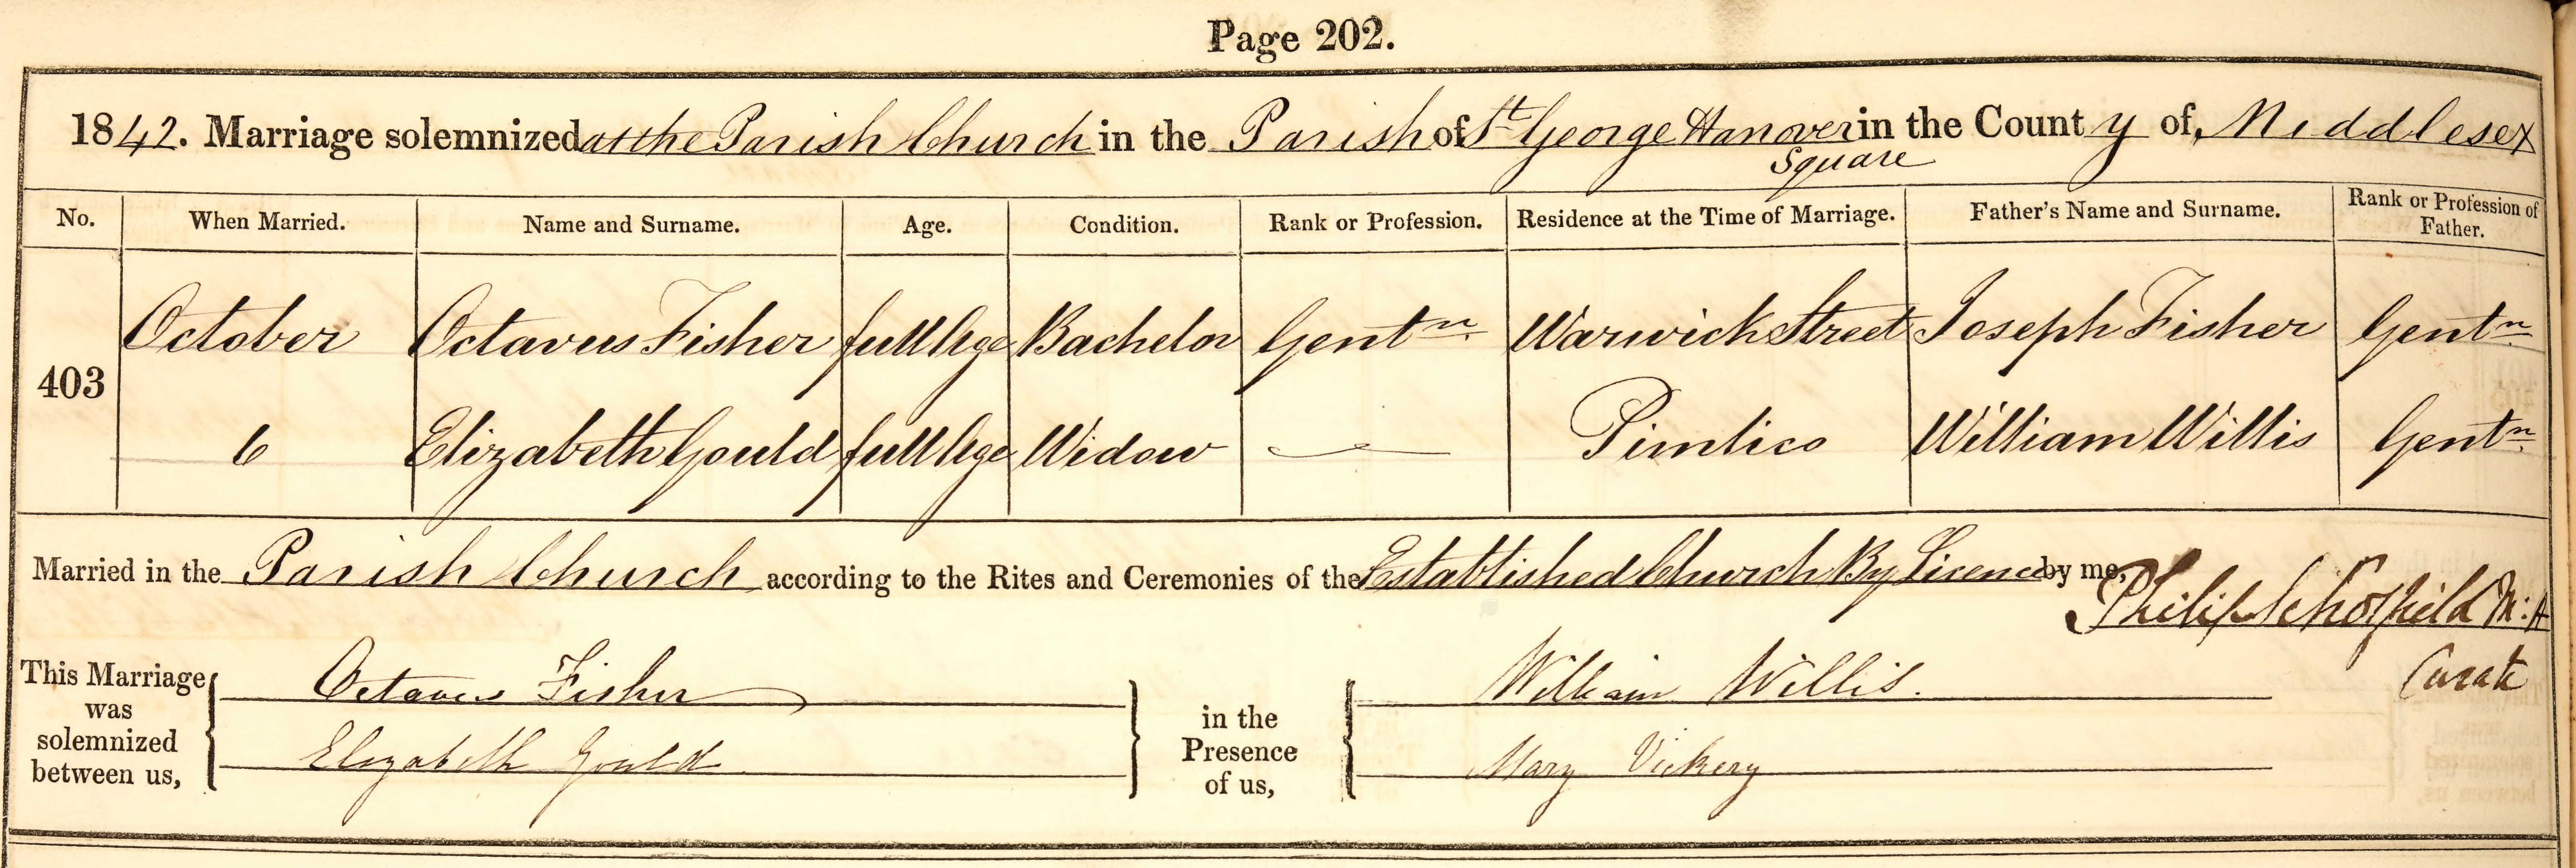 Page 202.
1842. Marriage solemnized at the Parish Church in the Parish of St George Hanover Square in the County of Middlesex
No. When Married. Name and Surname. Age. Condition. Rank or Profession. Residence at the Time of Marriage. Father's Name and Surname. Rank or Profession of Father.
403
October Octavus Fisher full Age Bachelor Gentn Warwick Street Joseph Fisher Gentn
6 Elizabeth Gould full Age Widow — Pimlico William Willis Gentn
Married in the Parish Church according to the Rites and Ceremonies of the Established Church By Licence by me,
Philip Schofield M:A
Curate
This Marriage was solemnized between us,
Octavus Fisher
Elizabeth Gould
in the Presence of us,
William Willis.
Mary Vickery